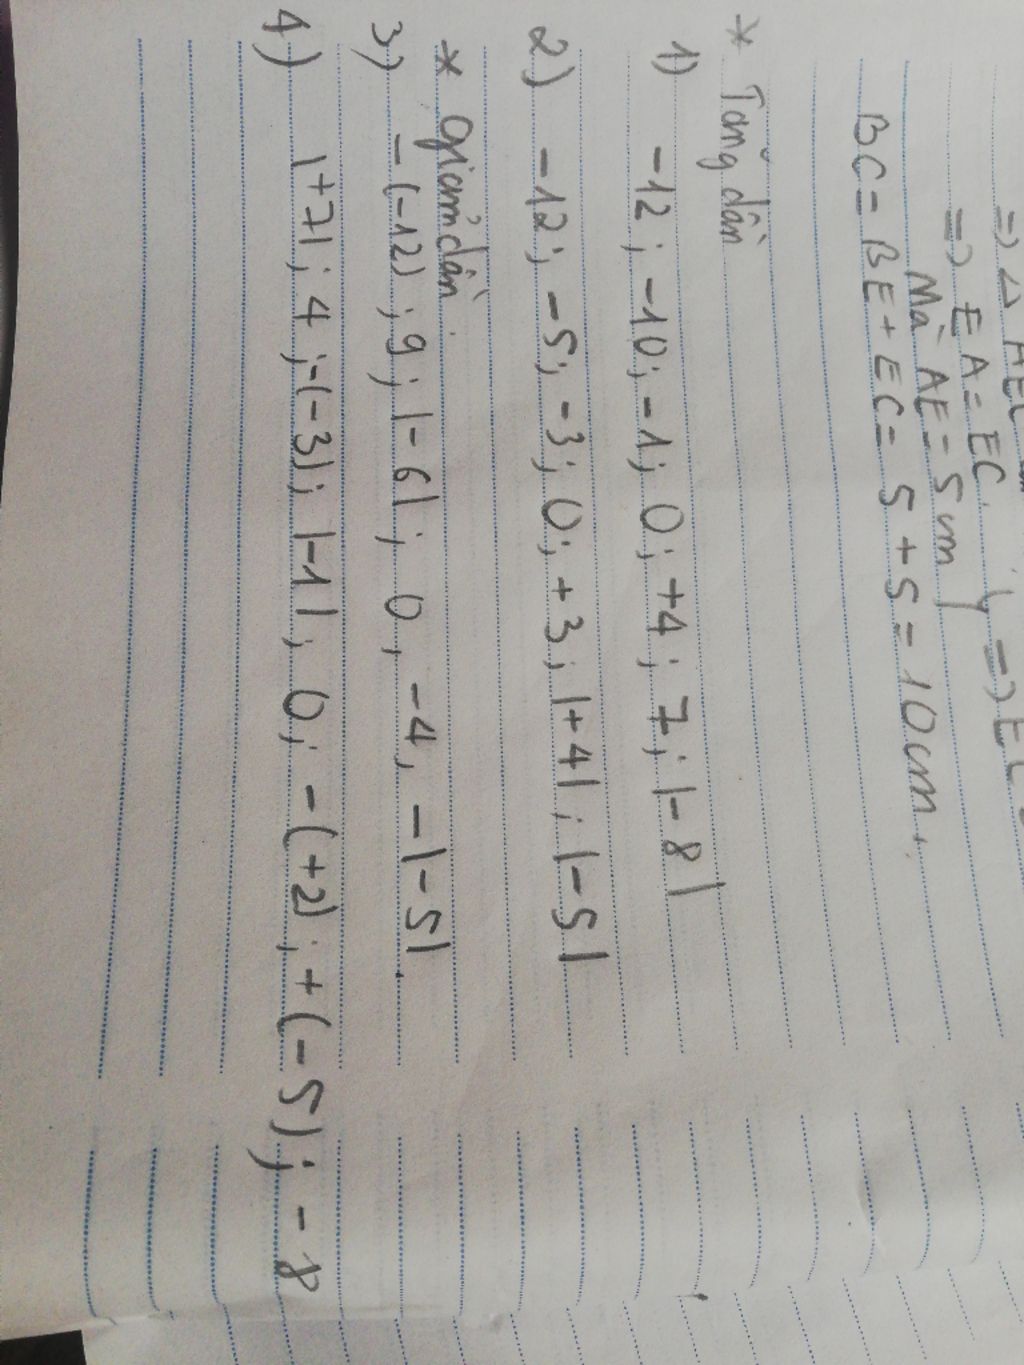 => Δ AEC
=> EA = EC
Mà AE = 5cm } =>
BC = BE + EC = 5 + 5 = 10cm.
* Tăng dần
1) -12; -10; -1; 0; +4; 7; |-8|
2) -12; -5; -3; 0; +3; |+4|; |-5|
* Giảm dần.
3) -(-12); 9; |-6|; 0, -4, -|-5|.
4) |+7|; 4; -(-3); |-1|, 0; -(+2); +(-5); -8